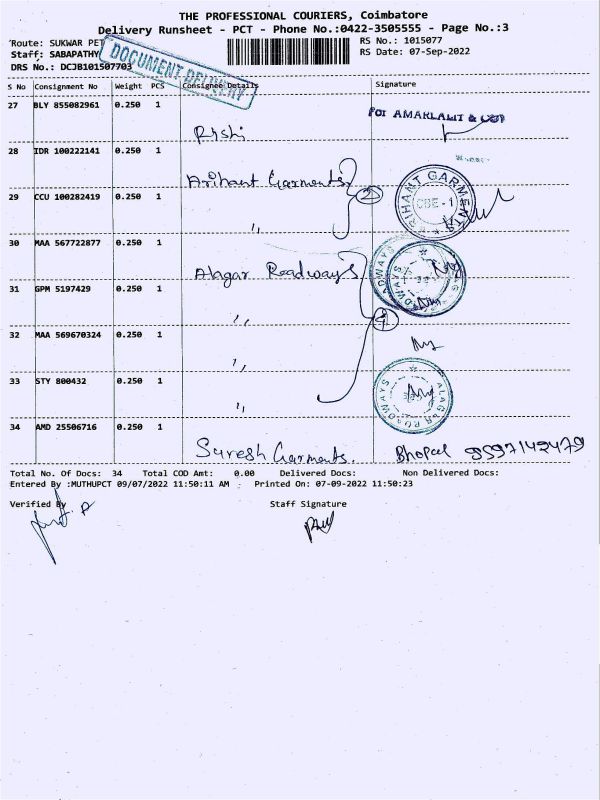 THE PROFESSIONAL COURIERS, Coimbatore
Delivery Runsheet - PCT - Phone No.:0422-3505555 - Page No.:3
Route: SUKWAR PET
RS No.: 1015077
Staff: SABAPATHY
RS Date: 07-Sep-2022
DRS No.: DCJB101507703
DOCUMENT DELIVERY
S No Consignment No Weight PCS Consignee Details Signature
27 BLY 855082961 0.250 1
For AMARLALIT & CO
Rishi
28 IDR 100222141 0.250 1
Arihant Garments
2
ARIHANT GARMENTS
CBE - 1
29 CCU 100282419 0.250 1
,,
30 MAA 567722877 0.250 1
Alagar Roadways
31 GPM 5197429 0.250 1
,,
4
32 MAA 569670324 0.250 1
,,
33 STY 800432 0.250 1
,,
ALAGAR ROADWAYS
34 AMD 25506716 0.250 1
Suresh Garments. Bhopal 9597142479
Total No. Of Docs: 34 Total COD Amt: 0.00 Delivered Docs: Non Delivered Docs:
Entered By :MUTHUPCT 09/07/2022 11:50:11 AM Printed On: 07-09-2022 11:50:23
Verified By Staff Signature